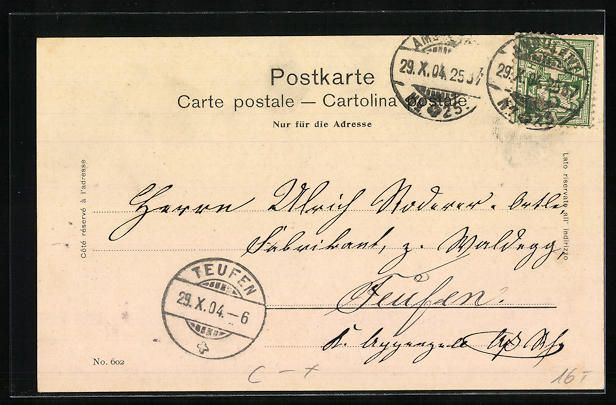 Postkarte
Carte postale — Cartolina postale
Nur für die Adresse
29.X.04.
29.X.04.
Côté réservé à l'adresse
Lato riservato all' indirizzo
Herrn Ulrich Roderer
Fabrikant, z. Waldegg,
Teufen.
K. Appenzell
TEUFEN
29.X.04.–6
No. 602